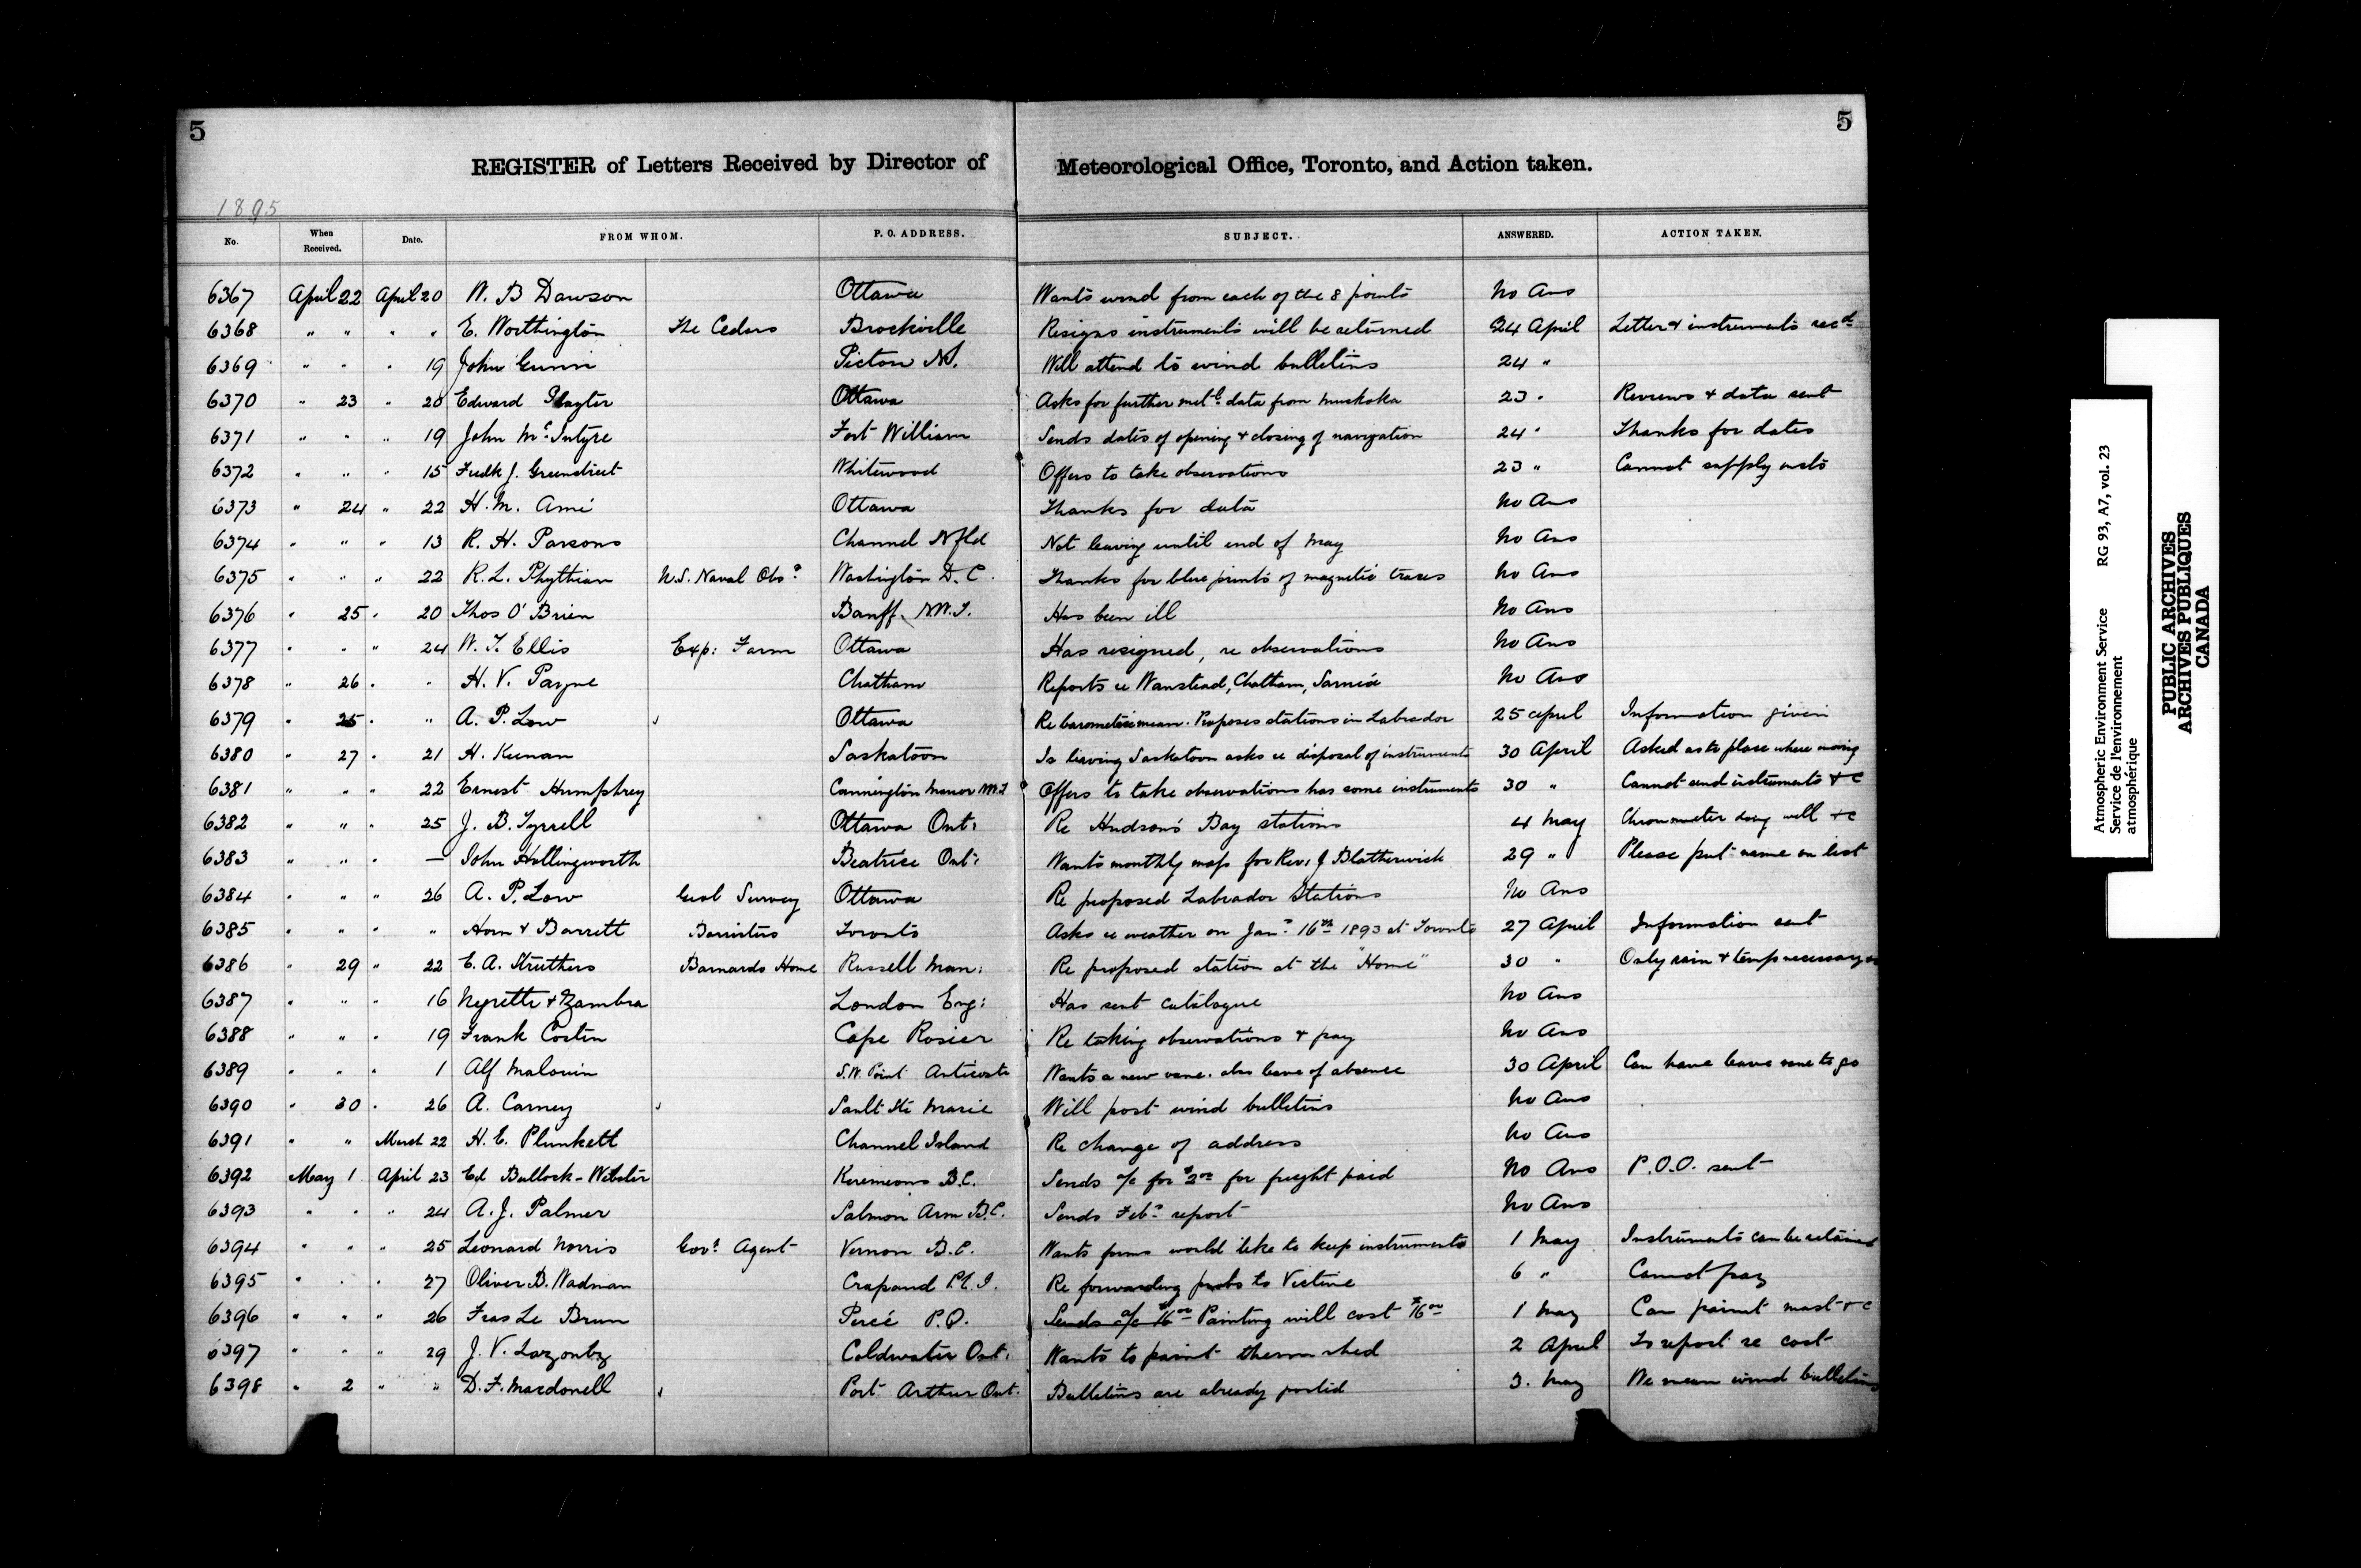 5 5
REGISTER of Letters Received by Director of Meteorological Office, Toronto, and Action taken.
1895
No. When Received. Date. FROM WHOM. P. O. ADDRESS. SUBJECT. ANSWERED. ACTION TAKEN.
6367 April 22 April 20 W. B Dawson Ottawa Wants wind from each of the 8 points No Ans
6368 " " " " E. Worthington The Cedars Brockville Resigns instruments will be returned 24 April Letter & instruments recd
6369 " " " 19 John Gunn Pictou N.S. Will attend to wind bulletins 24 "
6370 " 23 " 20 Edward Playter Ottawa Asks for further metl data from Muskoka 23 " Reviews & data sent
6371 " " " 19 John McIntyre Fort William Sends dates of opening & closing of navigation 24 " Thanks for dates
6372 " " " 15 Fredk J. Greenstreet Whitewood Offers to take observations 23 " Cannot supply insts
6373 " 24 " 22 H. M. Ami Ottawa Thanks for data No Ans
6374 " " " 13 R. H. Parsons Channel Nfld Not leaving until end of May No Ans
6375 " " " 22 R. L. Phythian U.S. Naval Obsy Washington D. C. Thanks for blue prints of magnetic traces No Ans
6376 " 25 " 20 Thos O'Brien Banff N.W.T. Has been ill No Ans
6377 " " " 24 W. T. Ellis Exp: Farm Ottawa Has resigned, re observations No Ans
6378 " 26 " " H. V. Payne Chatham Reports re Wanstead, Chatham, Sarnia No Ans
6379 " 25 " " A. P. Low Ottawa Re barometric mean. Proposes stations in Labrador 25 April Information given
6380 " 27 " 21 H. Keenan Saskatoon Is leaving Saskatoon asks re disposal of instruments 30 April Asked as to place where moving
6381 " " " 22 Ernest Humphrey Cannington Manor N.W.T Offers to take observations has some instruments 30 " Cannot send instruments &c
6382 " " " 25 J. B. Tyrrell Ottawa Ont: Re Hudson's Bay stations 4 May Chronometer doing well &c
6383 " " " — John Hollingworth Beatrice Ont: Wants monthly map for Rev: J Blatherwick 29 " Please put name on list
6384 " " " 26 A. P. Low Geol Survey Ottawa Re proposed Labrador Stations No Ans
6385 " " " " Horn & Barrett Barristers Toronto Asks re weather on Jany 16th 1893 at Toronto 27 April Information sent
6386 " 29 " 22 E. A. Struthers Barnardo Home Russell Man: Re proposed station at the "Home" 30 " Only rain & temp necessary
6387 " " " 16 Negretti & Zambra London Eng: Has sent catalogue No Ans
6388 " " " 19 Frank Costin Cape Rosier Re taking observations & pay No Ans
6389 " " " 1 Alf Malouin S.W. Point Anticosti Wants a new vane. also leave of absence 30 April Can have leave vane to go
6390 " 30 " 26 A. Carney Sault Ste Marie Will post wind bulletins No Ans
6391 " " March 22 H. E. Plunkett Channel Island Re change of address No Ans
6392 May 1 April 23 Ed Bullock-Webster Keremeos B.C. Sends a/c for $2.00 for freight paid No Ans P.O.O. sent
6393 " " " 24 A. J. Palmer Salmon Arm B.C. Sends Feby report No Ans
6394 " " " 25 Leonard Norris Govt Agent Vernon B.C. Wants forms would like to keep instruments 1 May Instruments can be retained
6395 " " " 27 Oliver B. Wadman Crapaud P.E.I. Re forwarding probs to Victine 6 " Cannot pay
6396 " " " 26 Fras Le Brun Percé P.Q. Sends a/c $16.00 Painting will cost $16.00 1 May Can paint mast &c
6397 " " " 29 J. V. Coldwater Ont: Wants to paint therm shed 2 April To report re cost
6398 " 2 " " D. F. Macdonell Port Arthur Ont. Bulletins are already posted 3. May We mean wind bulletins
Atmospheric Environment Service RG 93, A7, vol. 23
Service de l'environnement
atmosphérique
PUBLIC ARCHIVES
ARCHIVES PUBLIQUES
CANADA